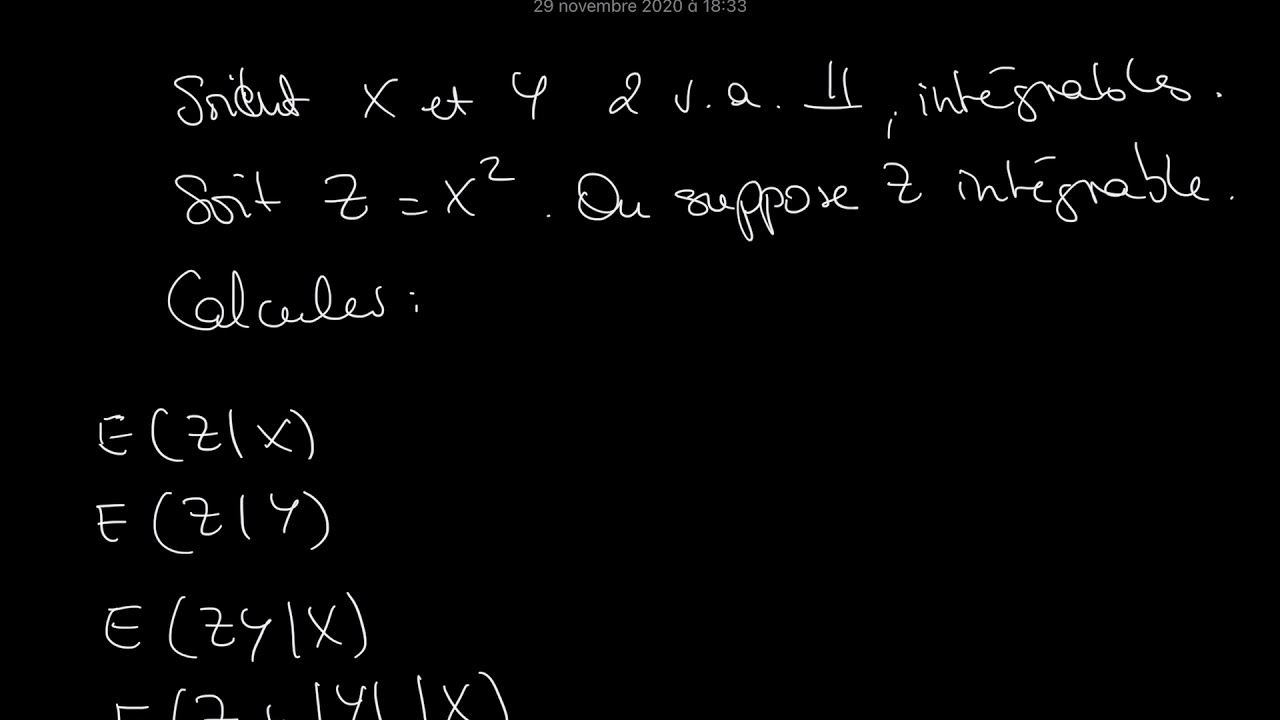 29 novembre 2020 à 18:33
Soient X et Y 2 v.a. ⊥⊥, intégrables.
Soit Z = X². On suppose Z intégrable.
Calculer :
E(Z|X)
E(Z|Y)
E(ZY|X)
E(Z+|Y| |X)